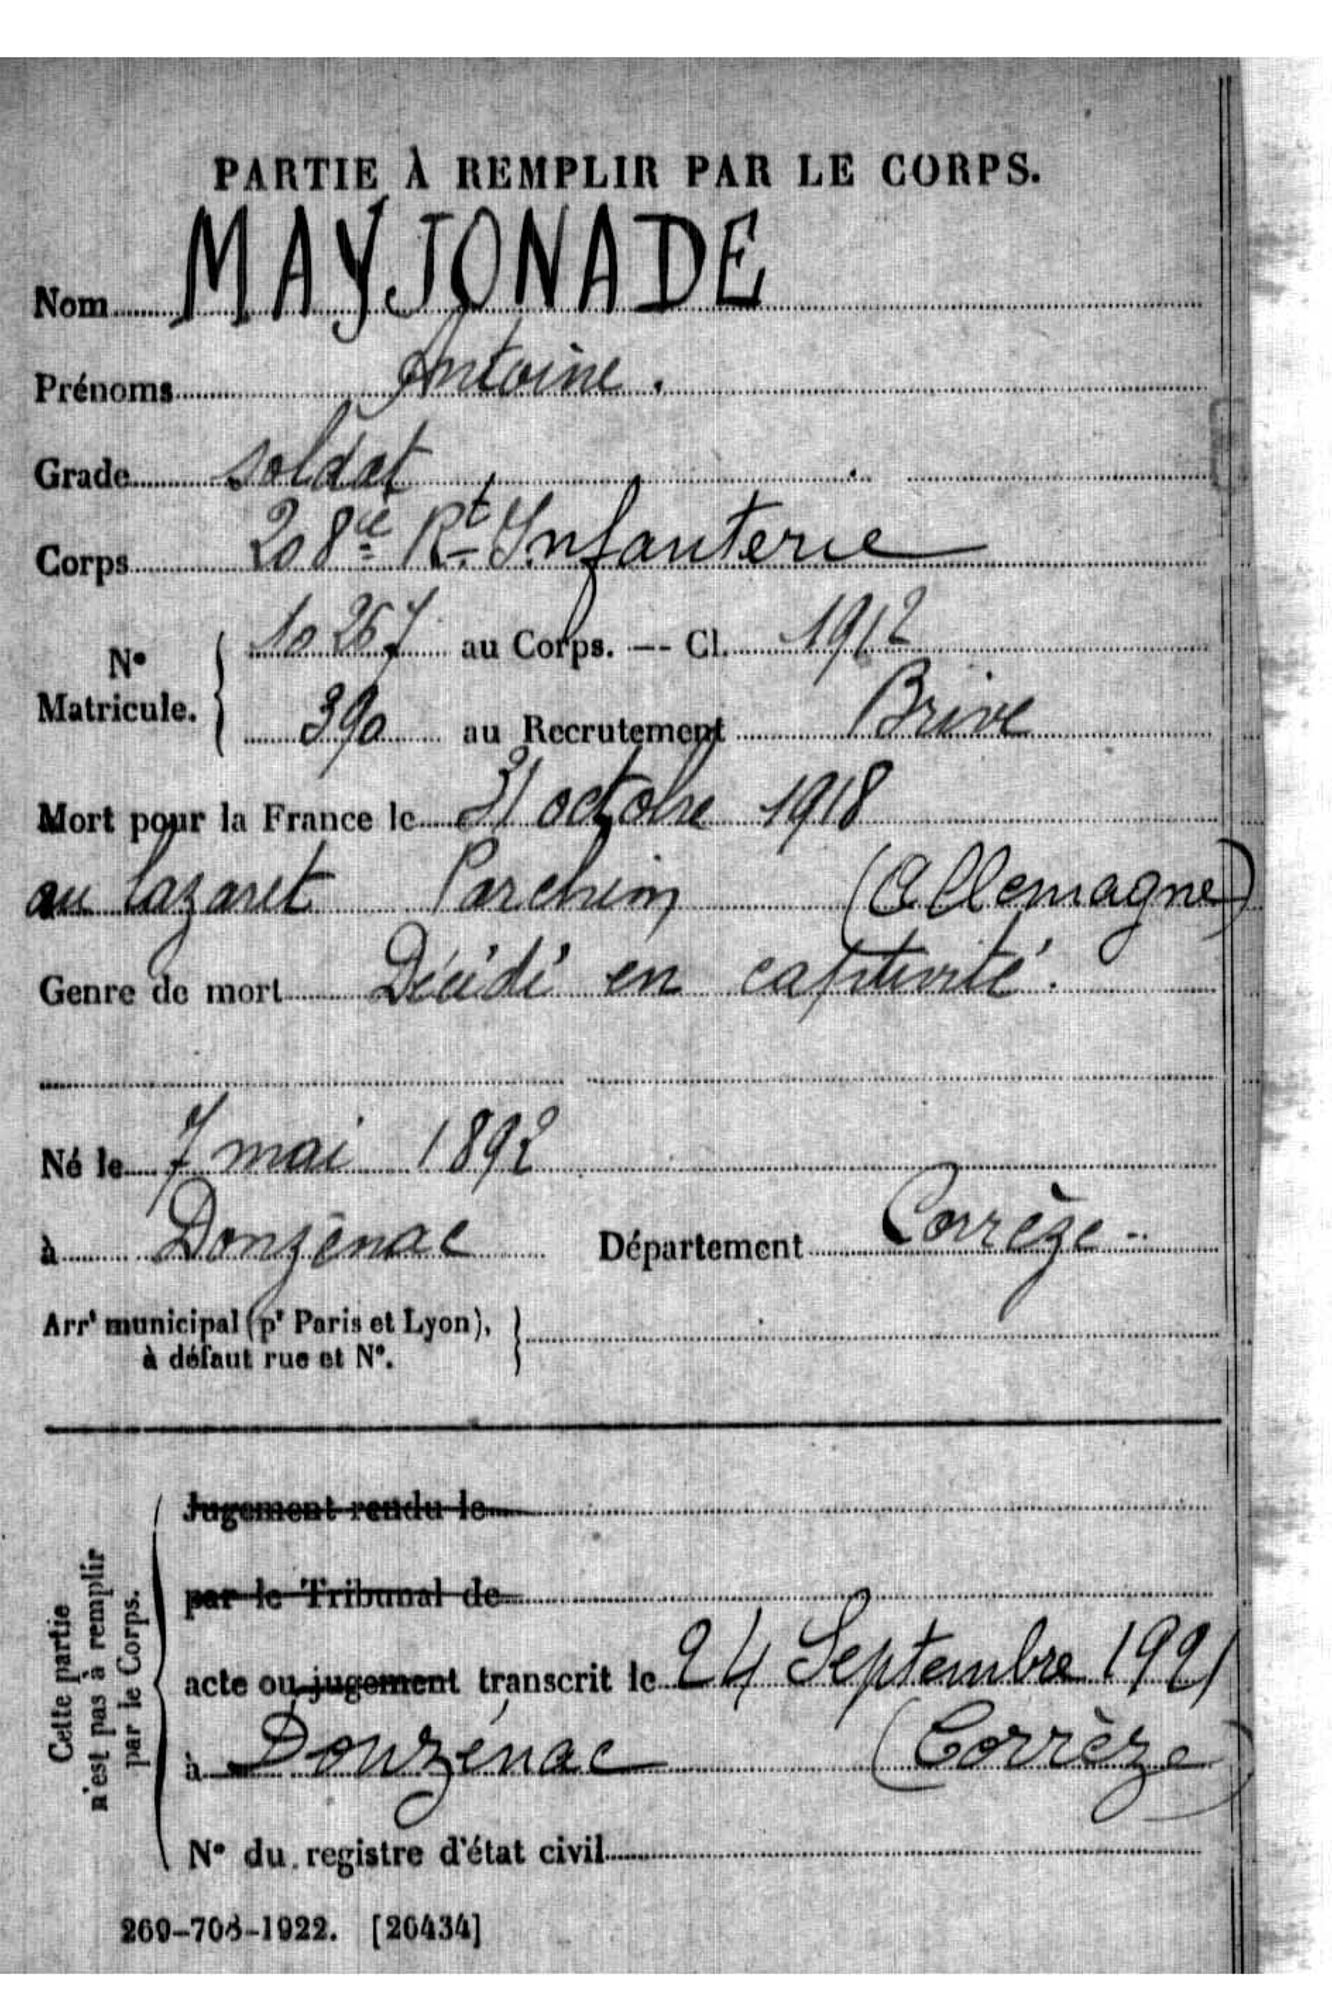 PARTIE À REMPLIR PAR LE CORPS.
Nom MAYJONADE
Prénoms Antoine.
Grade soldat
Corps 208e Rt Infanterie
No Matricule. 10267 au Corps. — Cl. 1912
390 au Recrutement Brive
Mort pour la France le 31 octobre 1918
au lazaret Parchim (Allemagne)
Genre de mort Décédé en captivité.
Né le 7 mai 1892
à Donzenac Département Corrèze
Arrt municipal (pr Paris et Lyon),
à défaut rue et No.
Cette partie
n'est pas à remplir
par le Corps.
Jugement rendu le
par le Tribunal de
acte ou jugement transcrit le 24 Septembre 1921
à Donzénac (Corrèze)
No du registre d'état civil
269-708-1922. [26434]